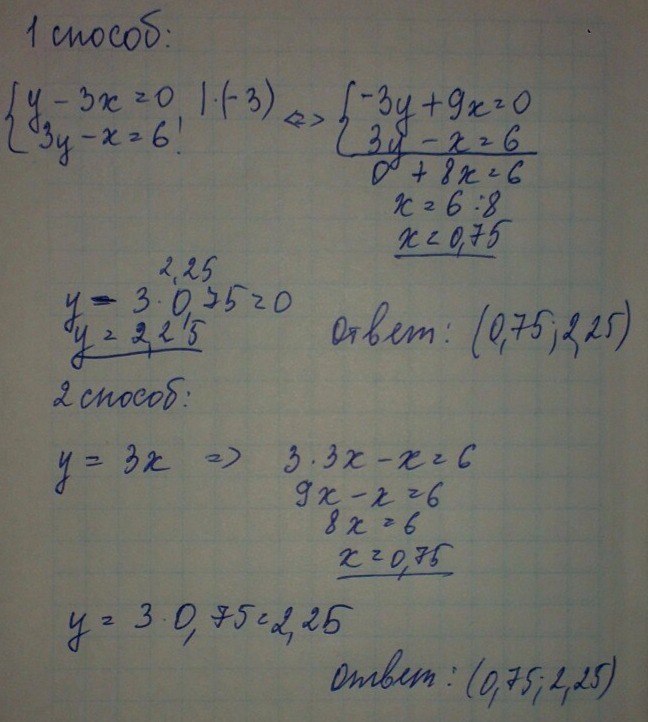 1 способ:
{ y - 3x = 0 | · (-3) <=> { -3y + 9x = 0
3y - x = 6 3y - x = 6
0 + 8x = 6
x = 6 : 8
x = 0,75
2,25
y - 3 · 0,75 = 0
y = 2,25
ответ: (0,75; 2,25)
2 способ:
y = 3x => 3 · 3x - x = 6
9x - x = 6
8x = 6
x = 0,75
y = 3 · 0,75 = 2,25
ответ: (0,75; 2,25)